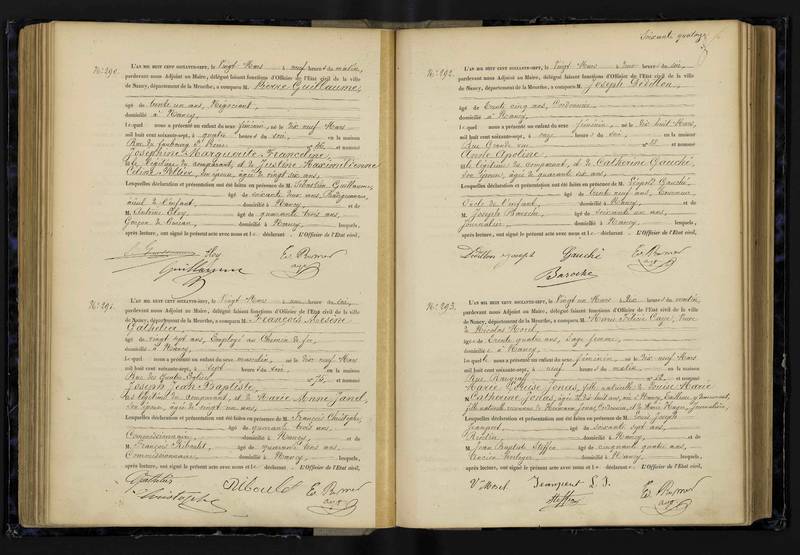 N° 290.
L'AN MIL HUIT CENT SOIXANTE-SEPT, le Vingt Mars à neuf heures du matin,
pardevant nous Adjoint au Maire, délégué faisant fonctions d'Officier de l'Etat civil de la ville
de Nancy, département de la Meurthe, a comparu M. Pierre Guillaume,
âgé de trente un ans, Négociant,
domicilié à Nancy,
lequel nous a présenté un enfant du sexe féminin, né le dix neuf Mars
mil huit cent soixante-sept, à quatre heures du soir, en la maison
Rue du faubourg St Pierre n° et nommé
Joséphine Marguerite Francoline,
fille légitime du comparant, et de Justine Maximilienne
Céline Peltier, son épouse, âgée de vingt six ans,
Lesquelles déclaration et présentation ont été faites en présence de M. Sébastien Guillaume,
âgé de soixante deux ans,
aïeul de l'enfant, domicilié à Nancy, et de
M. Eloy, âgé de quarante trois ans,
Garçon de Bureau, domicilié à Nancy, lesquels,
après lecture, ont signé le présent acte avec nous et le déclarant. L'Officier de l'Etat civil,
Eloy
Guillaume
N° 291.
L'AN MIL HUIT CENT SOIXANTE-SEPT, le Vingt Mars à une heure du soir,
pardevant nous Adjoint au Maire, délégué faisant fonctions d'Officier de l'Etat civil de la ville
de Nancy, département de la Meurthe, a comparu M. François
âgé de vingt ans, Employé au Chemin de fer,
domicilié à Nancy,
lequel nous a présenté un enfant du sexe masculin, né le dix neuf Mars
mil huit cent soixante-sept, à sept heures du soir, en la maison
Rue des Quatre Eglises n° et nommé
Joseph Jean Baptiste,
fils légitime du comparant, et de Marie Anne Janel,
son épouse, âgée de vingt un ans,
Lesquelles déclaration et présentation ont été faites en présence de M. François Christophe,
âgé de quarante trois ans,
Commissionnaire, domicilié à Nancy, et de
M. François Riboulet, âgé de quarante trois ans,
Commissionnaire, domicilié à Nancy, lesquels,
après lecture, ont signé le présent acte avec nous et le déclarant. L'Officier de l'Etat civil,
Christophe
Soixante quatorze
N° 292.
L'AN MIL HUIT CENT SOIXANTE-SEPT, le Vingt Mars à heures du soir,
pardevant nous Adjoint au Maire, délégué faisant fonctions d'Officier de l'Etat civil de la ville
de Nancy, département de la Meurthe, a comparu M. Joseph Dédillon,
âgé de trente cinq ans, Cordonnier,
domicilié à Nancy,
lequel nous a présenté un enfant du sexe féminin, né le dix huit Mars,
mil huit cent soixante-sept, à onze heures du soir, en la maison
Rue Grande rue n° et nommé
Anne Apoline,
fille légitime du comparant, et de Catherine Gauché,
son épouse, âgée de quarante six ans,
Lesquelles déclaration et présentation ont été faites en présence de M. Léopold Gauché,
âgé de trente neuf ans,
Oncle de l'enfant, domicilié à Nancy, et de
M. Joseph Baroche, âgé de soixante un ans,
Journalier, domicilié à Nancy, lesquels,
après lecture, ont signé le présent acte avec nous et le déclarant. L'Officier de l'Etat civil,
Dédillon Joseph Gauché
Baroche
N° 293.
L'AN MIL HUIT CENT SOIXANTE-SEPT, le Vingt un Mars à dix heures du matin,
pardevant nous Adjoint au Maire, délégué faisant fonctions d'Officier de l'Etat civil de la ville
de Nancy, département de la Meurthe, a comparu Marie Félicie Caye, Veuve
de Nicolas Morel,
âgée de trente quatre ans, Sage femme,
domiciliée à Nancy,
laquelle nous a présenté un enfant du sexe féminin, né le dix neuf Mars
mil huit cent soixante-sept, à heures du matin, en la maison
Rue n° et nommé
Marie Louise Jonas, fille naturelle de Louise Marie
Catherine Jonas, âgée de dix huit ans, née à Nancy,
fille naturelle reconnue de Jonas, Cordonnier, et de Marie Journalière,
Lesquelles déclaration et présentation ont été faites en présence de M. Louis Joseph
Jeanpert, âgé de soixante sept ans,
Rentier, domicilié à Nancy, et de
M. Jean Baptiste Steffen, âgé de cinquante quatre ans,
Ancien Horloger, domicilié à Nancy, lesquels,
après lecture, ont signé le présent acte avec nous et la déclarante. L'Officier de l'Etat civil,
Ve Morel Jeanpert L. J.
Steffen